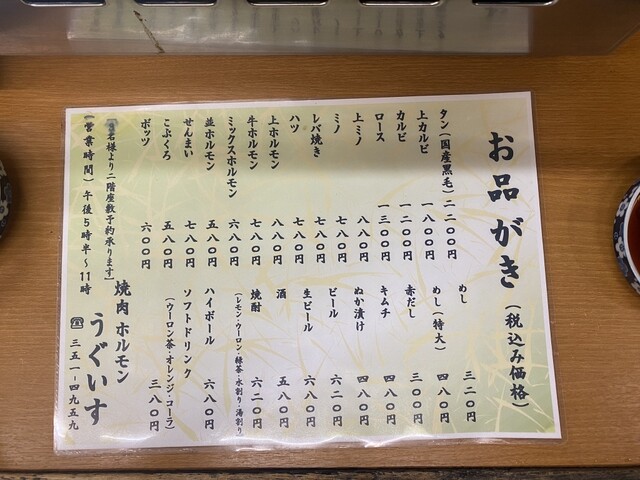 お品がき(税込み価格)
タン(国産黒毛)二二〇〇円
上カルビ 一八〇〇円
カルビ 一二〇〇円
ロース 一三〇〇円
上ミノ 八八〇円
ミノ 七八〇円
レバ焼き 七八〇円
ハツ 七八〇円
上ホルモン 八八〇円
牛ホルモン 七八〇円
ミックスホルモン 六八〇円
並ホルモン 五八〇円
せんまい 七八〇円
こぶくろ 五八〇円
ポッツ 六〇〇円
めし 三二〇円
めし(特大) 四八〇円
赤だし 三〇〇円
キムチ 四八〇円
ぬか漬け 四八〇円
ビール 六八〇円
生ビール 六八〇円
酒 五八〇円
焼酎 六二〇円
(レモン・ウーロン・緑茶・水割り・湯割り)
ハイボール 六八〇円
ソフトドリンク
(ウーロン茶・オレンジ・コーラ) 三八〇円
名様より二階座敷予約承ります】
(営業時間)午後5時半〜11時
焼肉 ホルモン うぐいす
☎ 三五一-四九五九